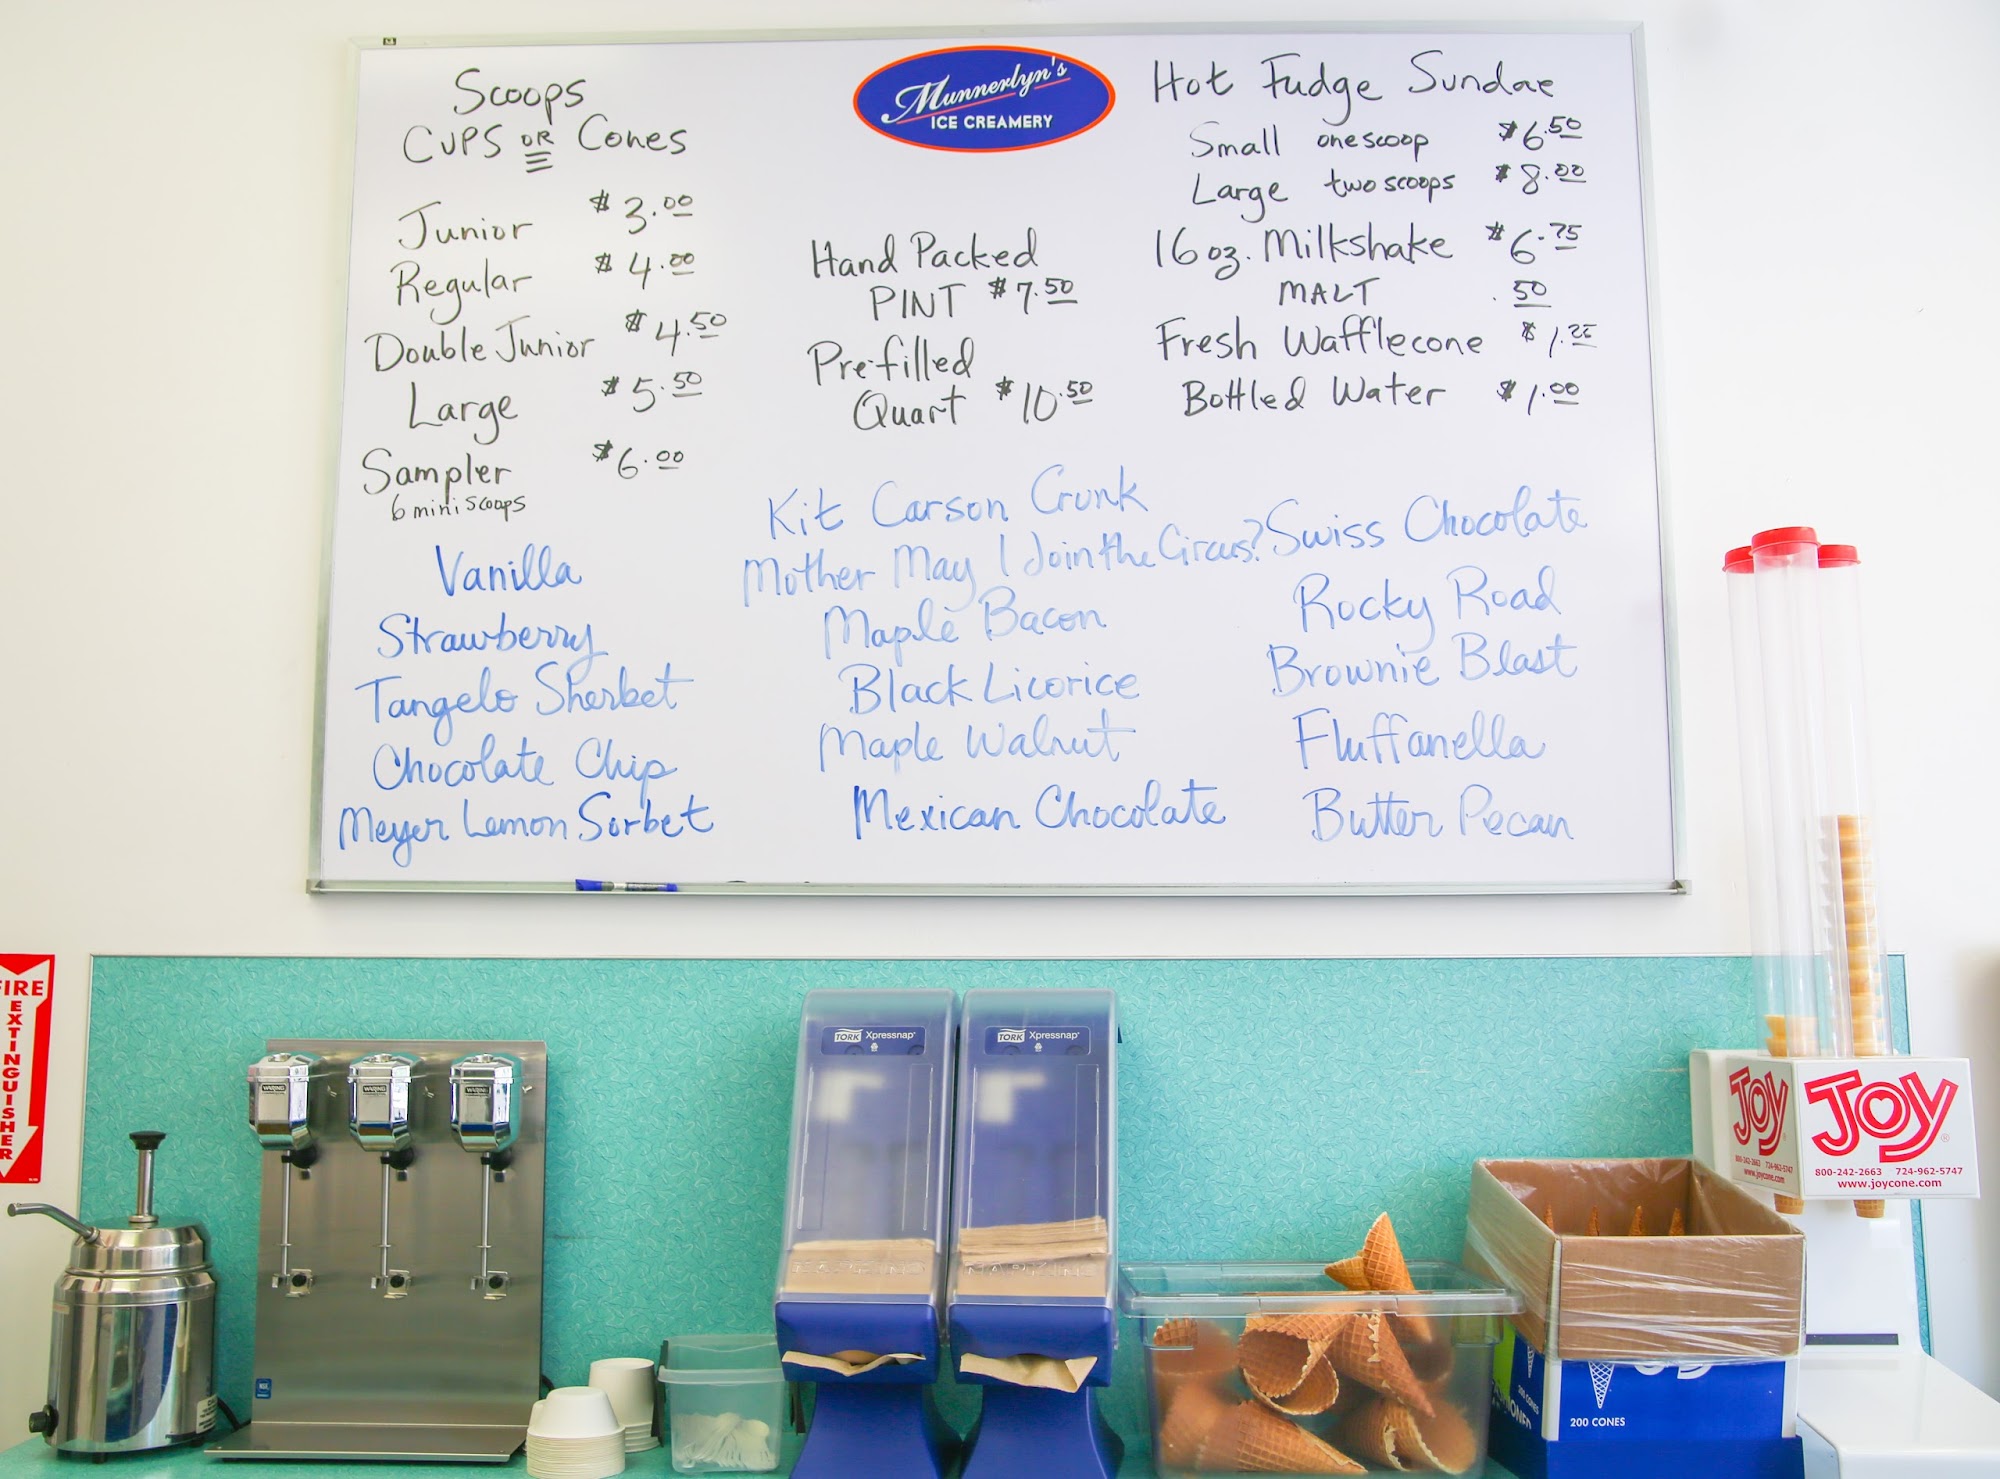 Munnerlyn's
ICE CREAMERY
Scoops
CUPS OR Cones
Junior $3.00
Regular $4.00
Double Junior $4.50
Large $5.50
Sampler $6.00
6 mini scoops
Hand Packed
PINT $7.50
Pre-filled
Quart $10.50
Hot Fudge Sundae
Small one scoop $6.50
Large two scoops $8.00
16 oz. Milkshake $6.75
MALT .50
Fresh Wafflecone $1.25
Bottled Water $1.00
Vanilla
Strawberry
Tangelo Sherbet
Chocolate Chip
Meyer Lemon Sorbet
Kit Carson Crunk
Mother May I Join the Circus?
Maple Bacon
Black Licorice
Maple Walnut
Mexican Chocolate
Swiss Chocolate
Rocky Road
Brownie Blast
Fluffanella
Butter Pecan
FIRE
EXTINGUISHER
WARING
WARING
WARING
TORK Xpressnap
NAPKINS
TORK Xpressnap
NAPKINS
JOY
800-242-2663 724-962-5747
www.joycone.com
JOY
800-242-2663 724-962-5747
www.joycone.com
200 CONES